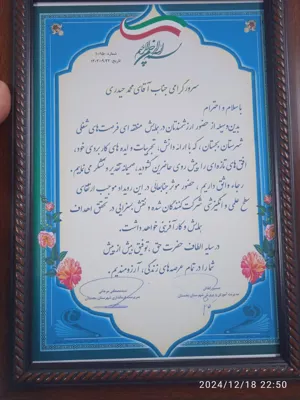 سرور گرامی جناب آقای محمد حیدری
با سلام و احترام
بدین وسیله از حضور ارزشمندتان در همایش منطقه ای فرصت های شغلی
شهرستان بجستان، که با ارائه دانش، تجربیات و ایده های کاربردی خود،
افق های تازه ای را پیش روی حاضرین گشودید، صمیمانه تقدیر و تشکر می نماییم.
رجاء واثق داریم، حضور موثر جنابعالی در این رویداد موجب ارتقای
سطح علمی و انگیزشی شرکت کنندگان شده و نقش بسزایی در تحقق اهداف
همایش و کارآفرینی خواهد داشت.
در سایه الطاف حضرت حق، توفیق بیش از پیش
شما را در تمام عرصه های زندگی، آرزومندیم.
2024/12/18 22:50